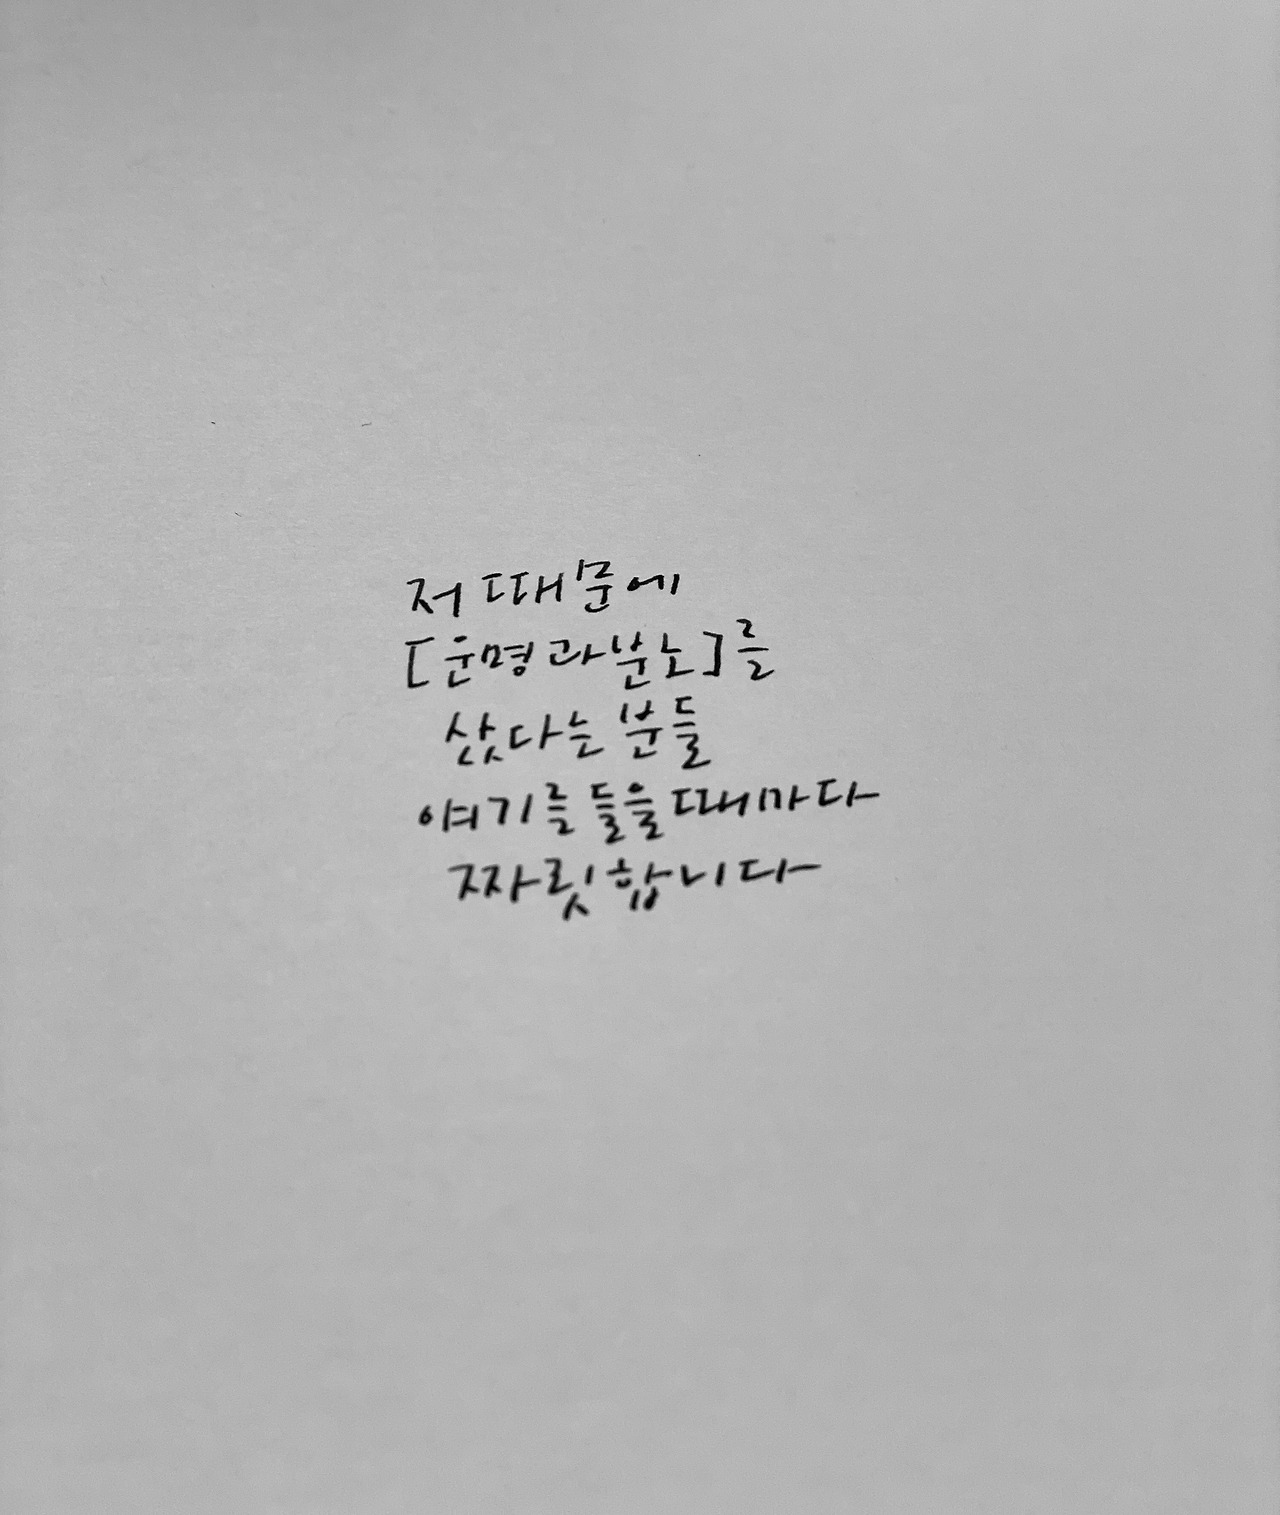 저 때문에
[운명과 분노]를
샀다는 분들
얘기를 들을 때마다
짜릿합니다